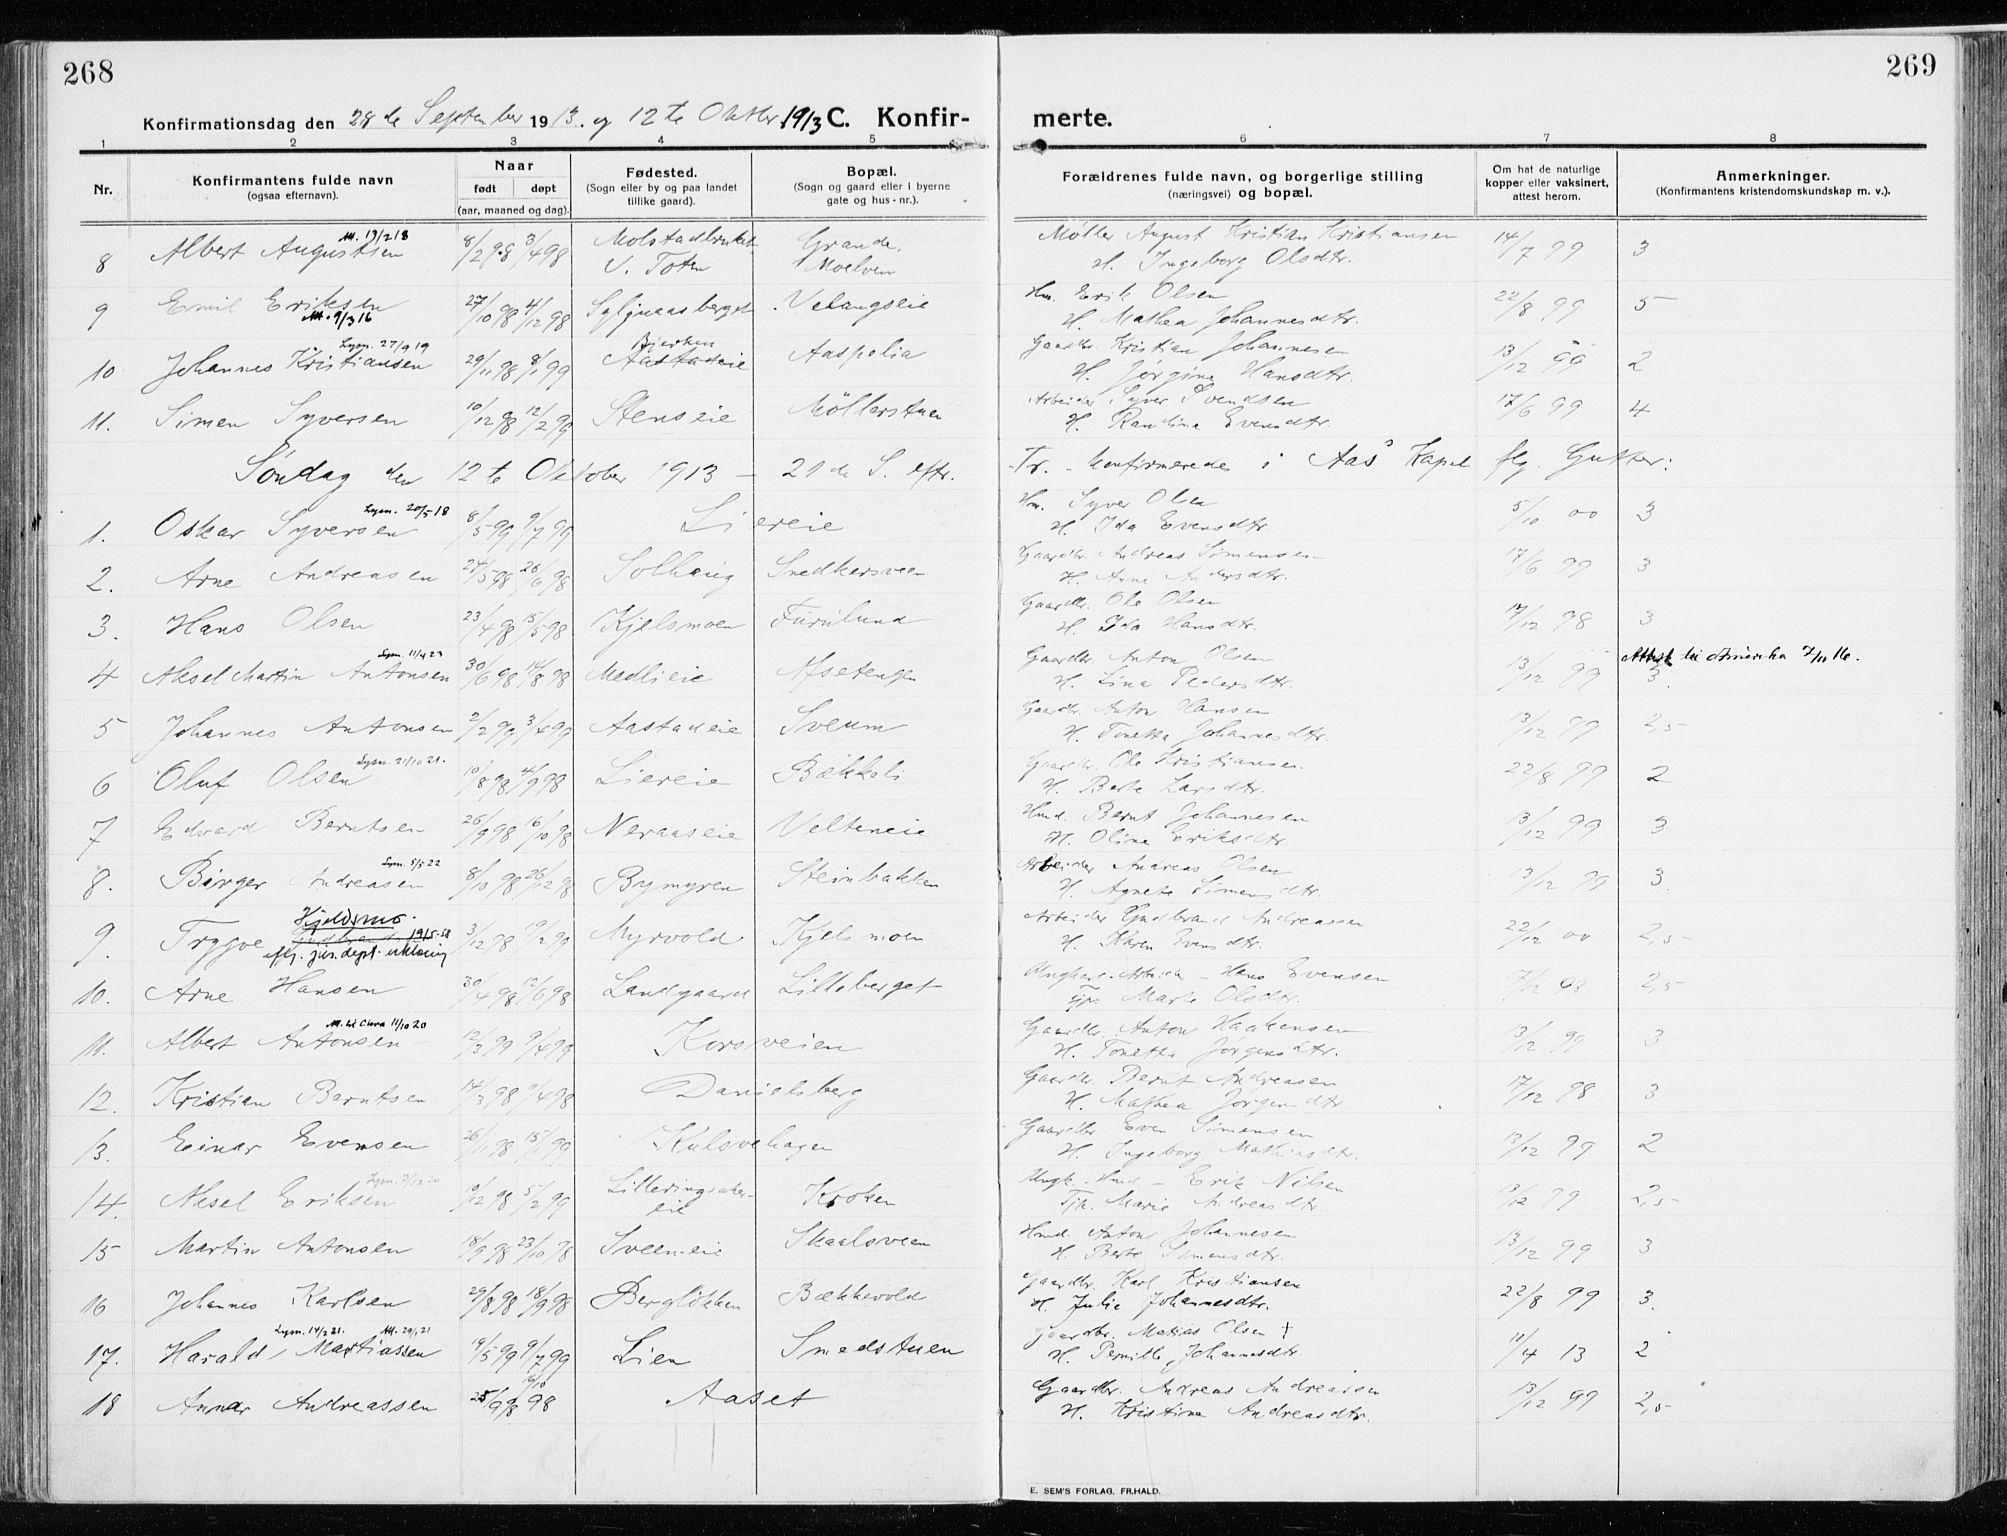 268
269
Konfirmationsdag den 28de September 1913. og 12te Oktbr 1913 C. Konfir-
merte.
1 2 3 4 5 6 7 8
Nr.
Konfirmantens fulde navn
(ogsaa efternavn).
Naar
født døpt
(aar, maaned og dag).
Fødested.
(Sogn eller by og paa landet
tillike gaard).
Bopæl.
(Sogn og gaard eller i byerne
gate og hus-nr.).
Forældrenes fulde navn, og borgerlige stilling
(næringsvei) og bopæl.
Om hat de naturlige
kopper eller vaksinert,
attest herom.
Anmerkninger.
(Konfirmantens kristendomskundskap m. v.).
Att. 19/2 18
8 Albert Augustsen 8/2 98 3/4 98 V. Toten Grande, Moelven Møller August Kristian Kristiansen 14/7 99 3
H. Ingeborg Olsdtr.
9 Emil Eriksen 27/10 98 4/12 98 Syljuaasberget Velangseie Hm. Erik Olsen 22/8 99 5
Att. 9/3 16 H. Mathea Johannesdtr.
Lysn. 27/9 19 Bjerken
10 Johannes Kristiansen 29/11 98 8/1 99 Aastadeie Aaspelia Gaardbr. Kristian Johannesen 13/12 99 2
H. Jørgine Hansdtr.
11. Simen Syversen 10/12 98 12/2 99 Stenseie Möllerstuen Arbeider Syver Svendsen 17/6 99 4
H. Randine Evensdtr.
Søndag den 12te Oktober 1913 - 21de S. eftr. Tr. - konfirmeredes i Aas Kapel flg. Gutter:
Lysn. 20/5 18
1. Oskar Syversen 8/5 99 9/7 99 Liereie Hm. Syver Olsen 5/10 00 3
H. Ida Evensdtr.
2. Arne Andreasen 27/5 98 26/6 98 Solhaug Snedkersveen Gaardbr. Andreas Simensen 17/6 99 3
H. Arne Andersdtr.
3. Hans Olsen 23/4 98 15/5 98 Kjelsmoen Furulund Gaardbr. Ole Olsen 17/12 98 3
H. Ida Hansdtr.
Lysn. 11/4 23
4 Aksel Martin Antonsen 30/6 98 14/8 98 Medlieie Afsetengen Gaardbr. Anton Olsen 13/12 99 Attest til Amerika 7/11 16.
H. Lina Pedersdtr. 3.
5 Johannes Antonsen 2/2 99 3/4 99 Aastadeie Sveum Gaardbr. Anton Hansen 13/12 99 2,5
H. Tonetta Johannesdtr.
Lysn. 21/10 21.
6 Oluf Olsen 10/8 98 4/9 98 Liereie Bækkeli Gaardbr. Ole Kristiansen. 22/8 99 2
H. Berte Larsdtr.
7 Edvard Berntsen 26/9 98 16/10 98 Neraaseie Velteneie Hmd. Bernt Johannesen 13/12 99 3
H. Oline Eriksdtr
Lysn. 5/5 22
8. Birger Andreasen 8/10 98 26/12 98 Bymyren Steinbakken Arbeider Andreas Olsen 13/12 99 3.
H. Agnete Simensdtr.
Kjeldsmo.
9. Trygve Gudbrand 19/5-58 3/12 98 19/2 99 Myrvold Kjelsmoen Arbeider Gudbrand Andreassen 22/12 00 2,5
efl. jus. dept. erklæring H. Karen Evensdtr.
10. Arne Hansen 30/4 98 19/6 98 Landgaard Lilleberget Ungkarl - Hans Evensen 7/12 98 2,5
Marte Olsdtr.
11/10 20
11. Albert Antonsen 12/3 99 9/4 99 Korsveien Gaardbr. Anton Haakensen 13/12 99 3
H. Tonetta Jørgensdtr.
12. Kristian Berntsen 14/3 98 9/4 98 Danielsberg Gaardbr. Bernt Andreasen 17/12 98 3
H. Mathea Jørgensdtr.
13. Einar Evensen 26/11 98 15/1 99 Kulsvehagen Gaardbr. Even Simensen 13/12 99 2
H. Ingeborg Mathiasdtr.
14. Aksel Eriksen 10/12 98 5/2 99 Kroken Ungk. Hmd. - Erik Nilsen 13/12 99 2,5
eie Tjp. Marie Andreasdtr.
15 Martin Antonsen 18/9 98 23/10 98 Sveeneie Skaalsveen Hmd. Anton Johannesen 13/12 99 3
H. Berte Simensdtr.
16 Johannes Karlsen 29/8 98 18/9 98 Bergløkken Bækkevold Gaardbr. Karl Kristiansen 22/8 99 3.
H. Julie Johannesdtr.
Lysn. 14/2 21. Att. 29/1 21
17. Harald Martiassen 14/5 99 9/7 99 Lien Smedstuen Gaardbr. Matias Olsen † 11/4 13 2
H. Pernille Johannesdtr.
18 Annar Andreassen 25/9 98 16/10 98 Aaset Gaardbr. Andreas Andreassen 13/12 99 2,5
H. Kristine Andreasdtr.
E. SEM'S FORLAG, FR.HALD.